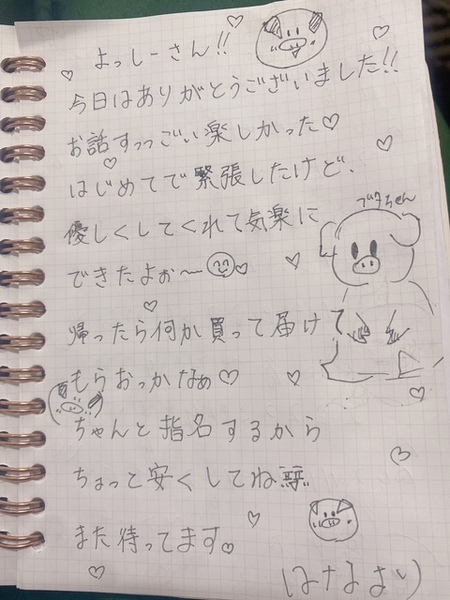 よっしーさん!!
今日はありがとうございました!!
お話すっっごい楽しかった♡
はじめてで緊張したけど、
ブタちゃん
優しくしてくれて気楽に
できたよぉ〜
帰ったら何か買って届けて
もらおっかなぁ♡
ちゃんと指名するから
ちょっと安くしてね
また待ってます。